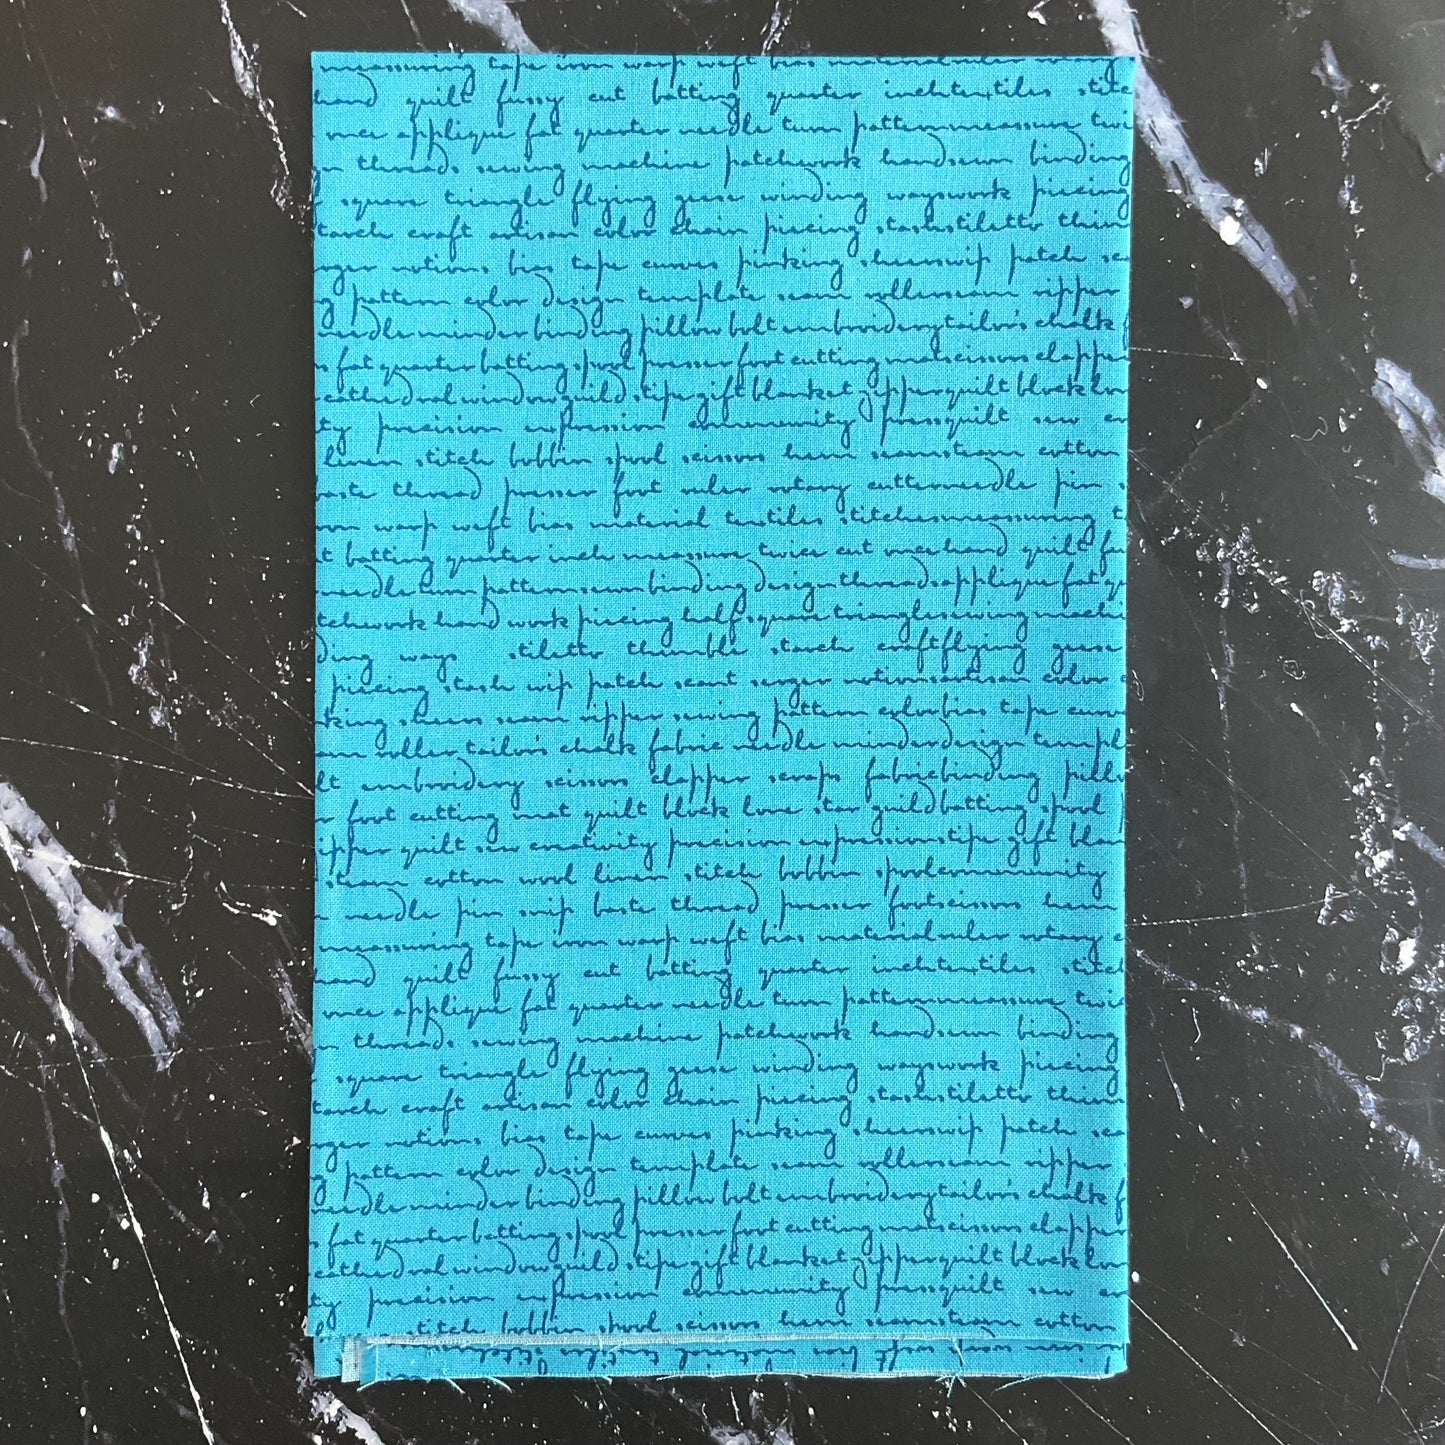 measuring tape iron warp weft bias material ruler rotary
hand quilt fussy cut batting quarter inch textiles stitc
once applique fat quarter needle turn pattern measure twi
gn threads sewing machine patchwork hand sewn binding
f square triangle flying geese winding ways work piecing
tarch craft artisan color chain piecing stash stiletto thim
rger notions bias tape curves pinking shears wip patch sca
g pattern color design template seam roller seam ripper
needle minder binding pillow bolt embroidery tailor's chalk f
s fat quarter batting spool presser foot cutting mat scissors clapper
cathedral window guild stipe gift blanket zipper quilt block lov
ty precision expression community press quilt sew cr
linen stitch bobbin spool scissors hem seam steam cotton
baste thread presser foot ruler rotary cutter needle pin s
ron warp weft bias material textiles stitches measuring t
t batting quarter inch measure twice cut once hand quilt fu
needle turn pattern sewn binding design threads applique fat qu
tchwork hand work piecing half square triangle sewing machi
ding ways stiletto thimble starch craft flying geese
piecing stash wip patch scant serger notions artisan color c
king shears seam ripper sewing pattern color bias tape curv
am roller tailor's chalk fabric needle minder design templ
lt embroidery scissors clapper scraps fabric binding pillo
r foot cutting mat quilt block lone star guild batting spool
ipper quilt sew creativity precision expression stipe gift blan
steam cotton wool linen stitch bobbin spool community
needle pin snip baste thread presser foot scissors hem
measuring tape iron warp weft bias material ruler rotary c
hand quilt fussy cut batting quarter inch textiles stitch
once applique fat quarter needle turn pattern measure twic
n threads sewing machine patchwork hand sewn binding
square triangle flying geese winding ways work piecing
tarch craft artisan color chain piecing stash stiletto thim
rger notions bias tape curves pinking shears wip patch sca
g pattern color design template seam roller seam ripper
needle minder binding pillow bolt embroidery tailor's chalk f
s fat quarter batting spool presser foot cutting mat scissors clapper
cathedral window guild stipe gift blanket zipper quilt block lov
ty precision expression community press quilt sew cr
stitch bobbin spool scissors hem seam steam cotton
iron warp weft bias material textiles stitches